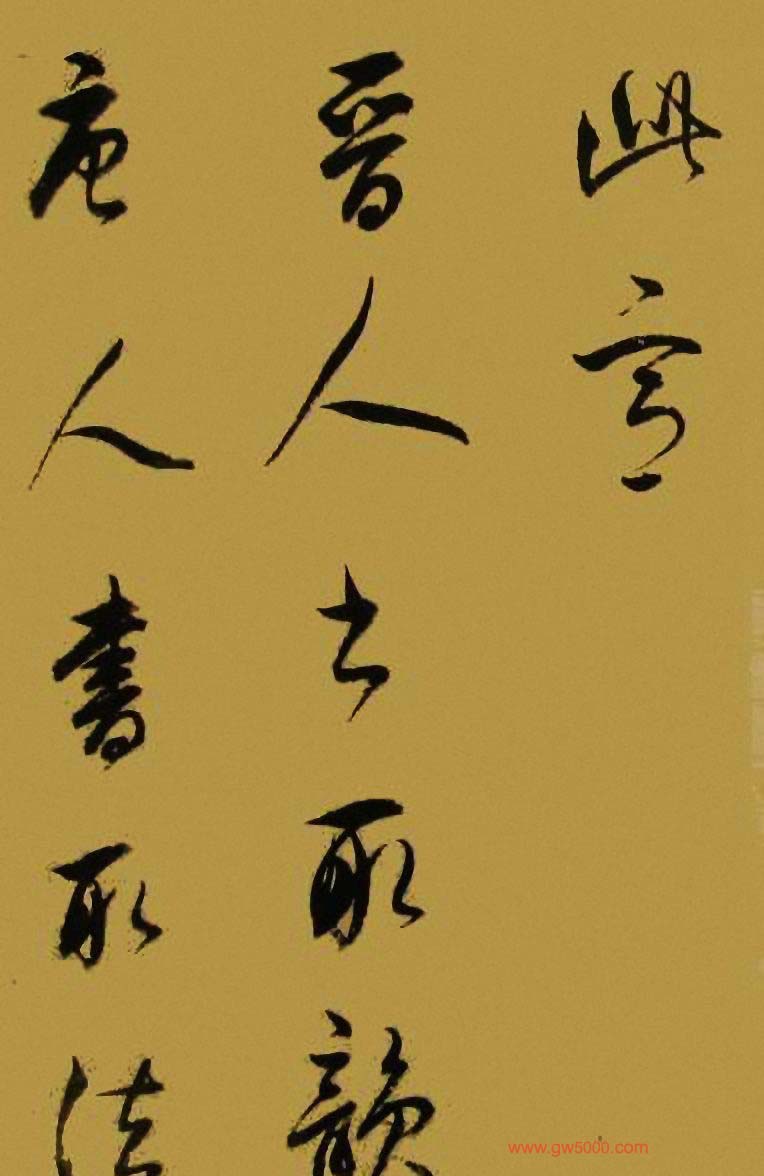 此
晋人書取韻
唐人書取法
www.gw5000.com